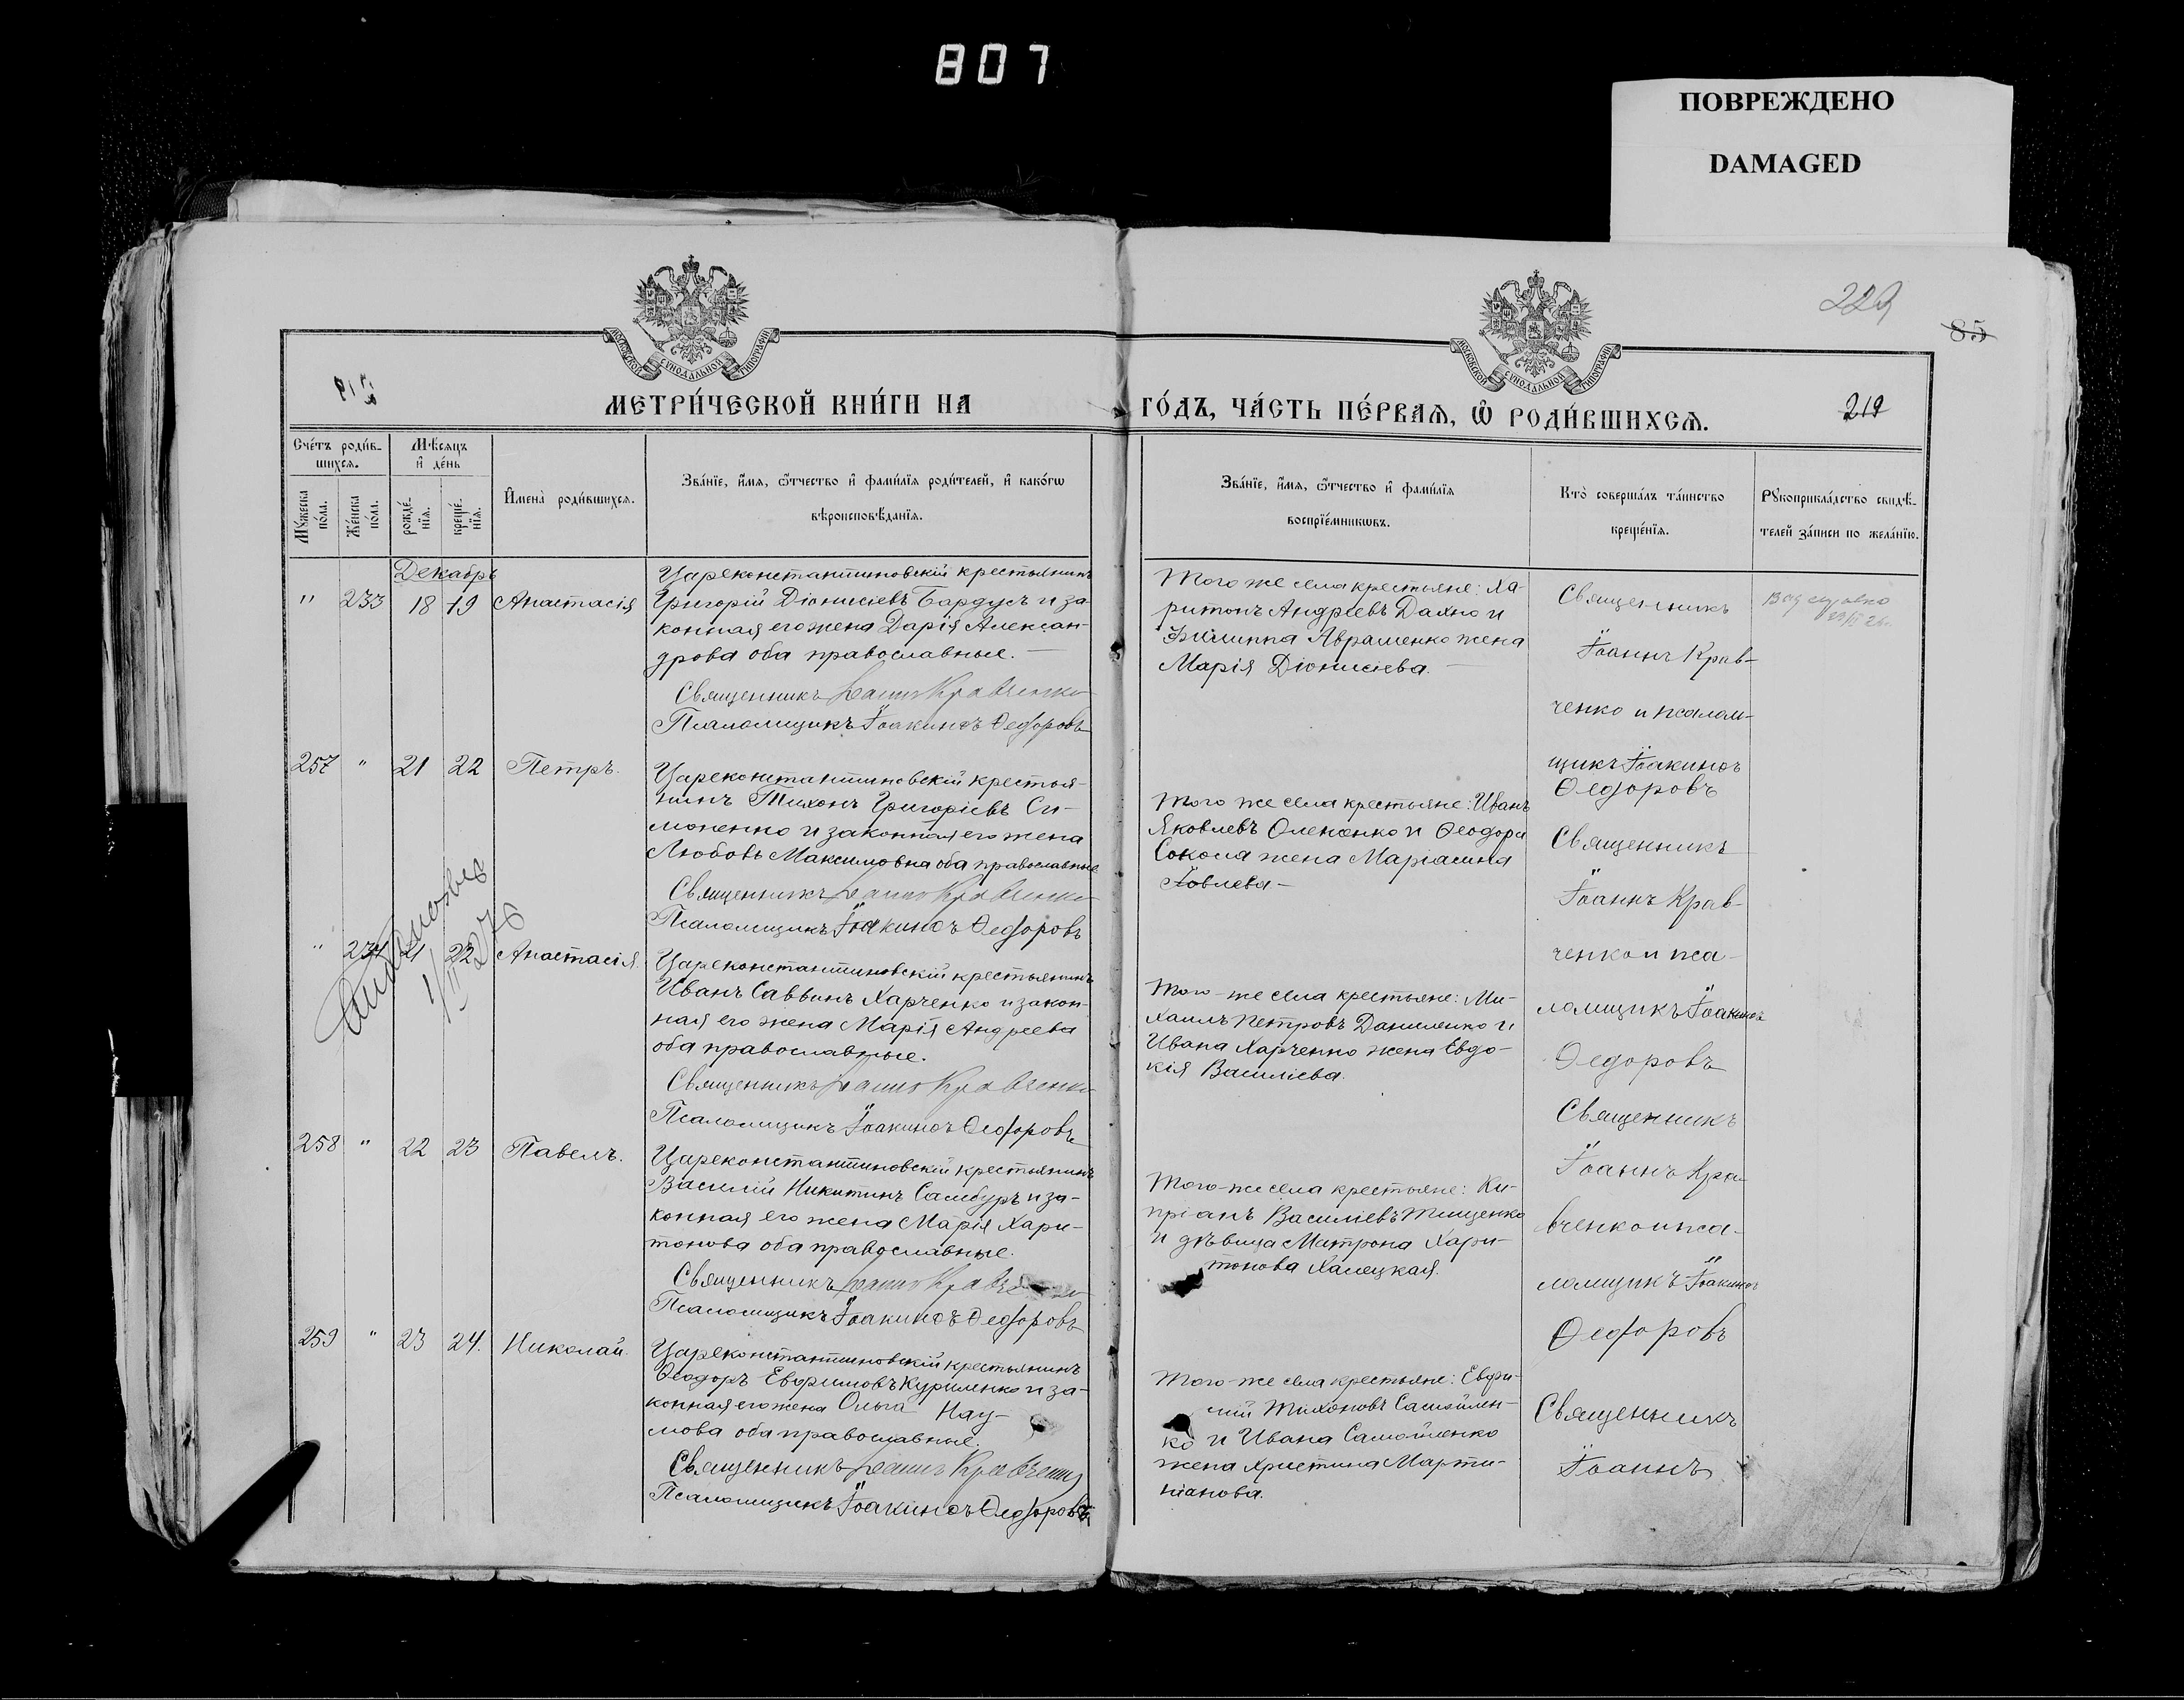 807
ПОВРЕЖДЕНО
DAMAGED
229
85
МОСКОВСКОЙ СѴНОДАЛЬНОЙ ТИПОГРАФІИ
МОСКОВСКОЙ СѴНОДАЛЬНОЙ ТИПОГРАФІИ
МЕТРИ́ЧЕСКОЙ КНИ́ГИ НА
ГО́ДЪ, ЧА́СТЬ ПЕ́РВАѦ, Ѽ РОДИ́ВШИХСѦ.
219
Сче́тъ роди́в-
шихся.
Мѣ́сяцъ
и҆ де́нь
Мꙋ́жеска
по́ла.
Же́нска
по́ла.
рожде́-
нїя.
креще́-
нїя.
И҆мена̀ роди́вшихся.
Зва́нїе, и҆́мя, ѻ҆́тчество и҆ фами́лїя роди́телей, и҆ како́гѡ
вѣроисповѣ́данїя.
Зва́нїе, и҆́мя, ѻ҆́тчество и҆ фами́лїя
воспрїе́мникѡвъ.
Кто̀ соверша́лъ та́инство
креще́нїя.
Рꙋкоприкла́дство свидѣ́-
телей за́писи по жела́нїю.
Декабрь
" 233 18 19 Анастасія
Цареконстантиновскій крестьянинъ
Григорій Діонисіевъ Бардусъ и за-
конная его жена Дарія Алексан-
дрова оба православные. —
Священникъ Іоаннъ Кравченко
Псаломщикъ Іоакимъ Ѳедоровъ
Того же села крестьяне: Ха-
ритонъ Андреевъ Дахно и
Филиппа Авраменко жена
Марія Діонисіева. —
Священникъ
Іоаннъ Крав-
ченко и псалом-
щикъ Іоакимъ
Ѳедоровъ
257 " 21 22 Петръ.
Цареконстантиновскій крестья-
нинъ Тихонъ Григоріевъ Си-
моненко и законная его жена
Любовь Максимовна оба православные
Священникъ Іоаннъ Кравченко
Псаломщикъ Іоакимъ Ѳедоровъ
Того же села крестьяне: Иванъ
Яковлевъ Олененко и Ѳеодора
Сокола жена Маріамна
Іовлева —
Священникъ
Іоаннъ Крав-
ченко и пса-
ломщикъ Іоакимъ
Ѳедоровъ
" 234 21 22 Анастасія.
Цареконстантиновскій крестьянинъ
Иванъ Саввинъ Харченко и закон-
ная его жена Марія Андреева
оба православные.
Священникъ Іоаннъ Кравченко
Псаломщикъ Іоакимъ Ѳедоровъ
Того-же села крестьяне: Ми-
хаилъ Петровъ Даниленко и
Ивана Харченко жена Евдо-
кія Василіева.
Священникъ
Іоаннъ Кра-
вченко и пса-
ломщикъ Іоакимъ
Ѳедоровъ
258 " 22 23 Павелъ.
Цареконстантиновскій крестьянинъ
Василій Никитинъ Самбуръ и за-
конная его жена Марія Хари-
тонова оба православные.
Священникъ Іоаннъ Кравченко
Псаломщикъ Іоакимъ Ѳедоровъ
Того-же села крестьяне: Ки-
пріанъ Василіевъ Тищенко
и дѣвица Матрона Хари-
тонова Халецкая.
259 " 23 24. Николай.
Цареконстантиновскій крестьянинъ
Ѳеодоръ Евфимовъ Куриленко и за-
конная его жена Ольга Нау-
мова оба православные.
Священникъ Іоаннъ Кравченко
Псаломщикъ Іоакимъ Ѳедоровъ
Того-же села крестьяне: Евфи-
мій Тихоновъ Самойлен-
ко и Ивана Самойленко
жена Христина Марти-
ніанова.
Священникъ
Іоаннъ